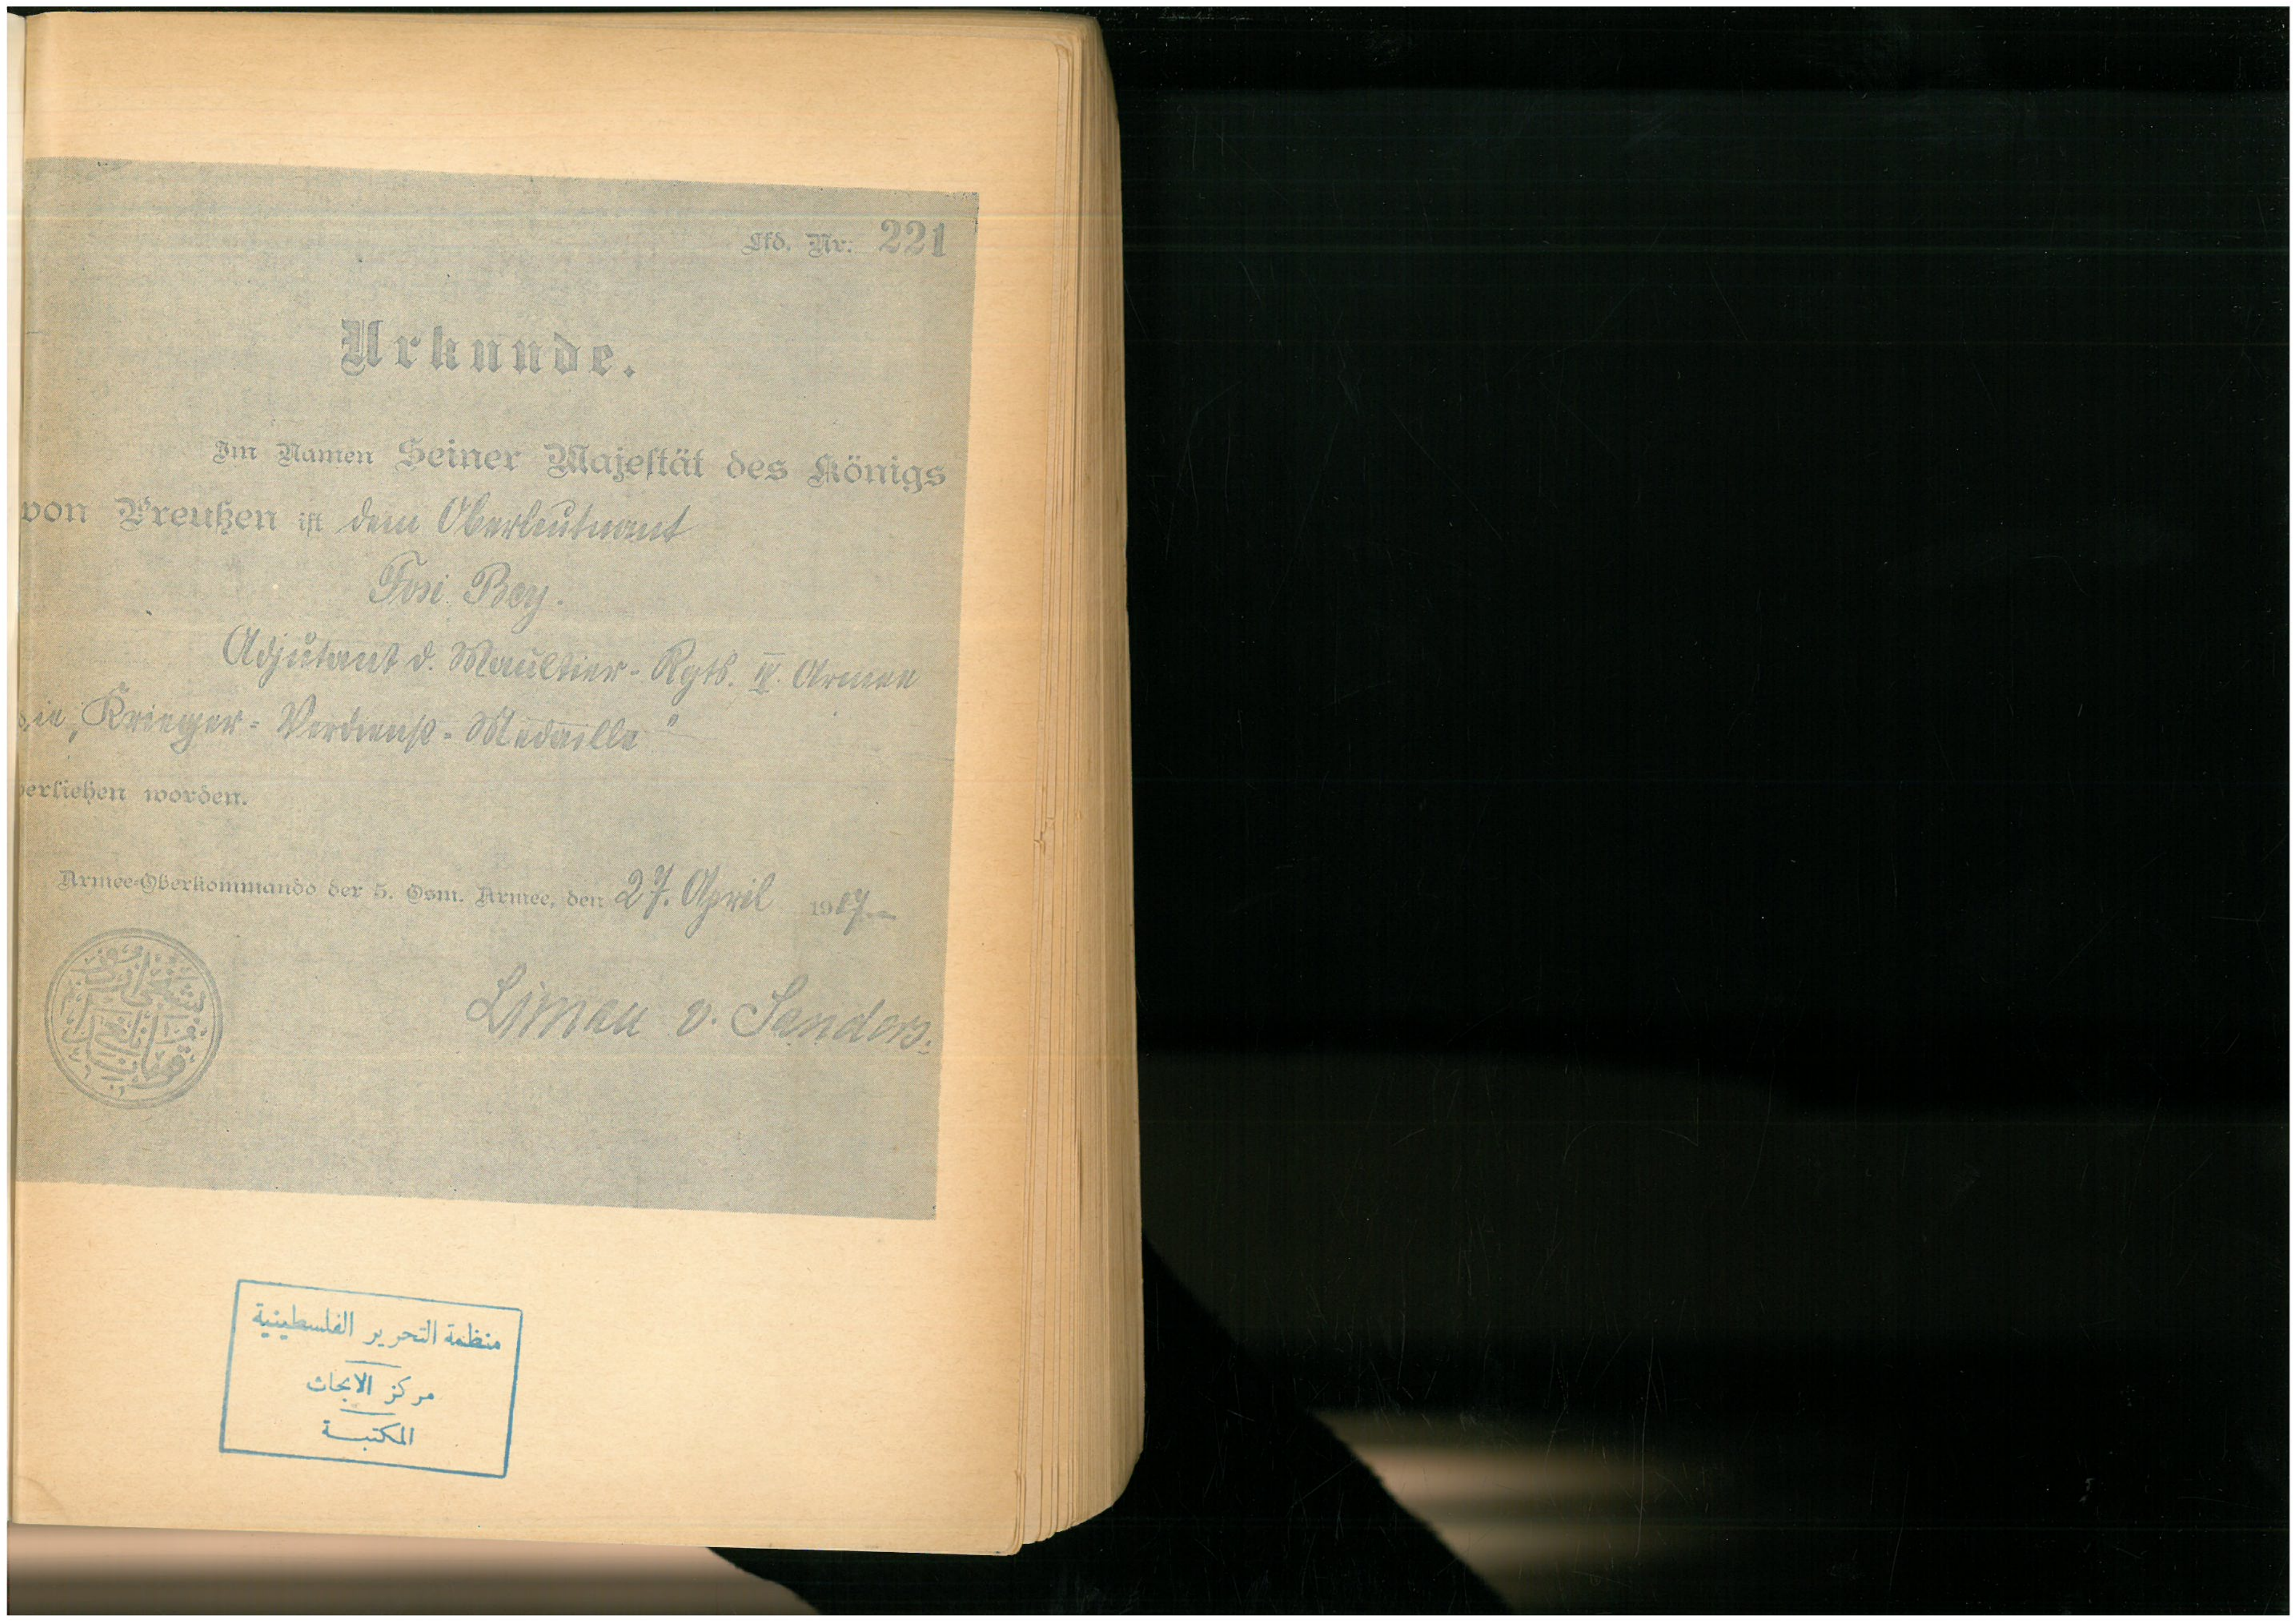 Lfd. Nr. 221
Urkunde.
Im Namen Seiner Majestät des Königs
von Preußen ist dem Oberleutnant
Fosi Bey.
Adjutant d. Maultier-Rgts. IV. Armee
die „Krieger-Verdienst-Medaille"
verliehen worden.
Armee-Oberkommando der 5. Osm. Armee, den 27. April 1917
Liman v. Sanders.
منظمة التحرير الفلسطينية
مركز الابحاث
المكتبة